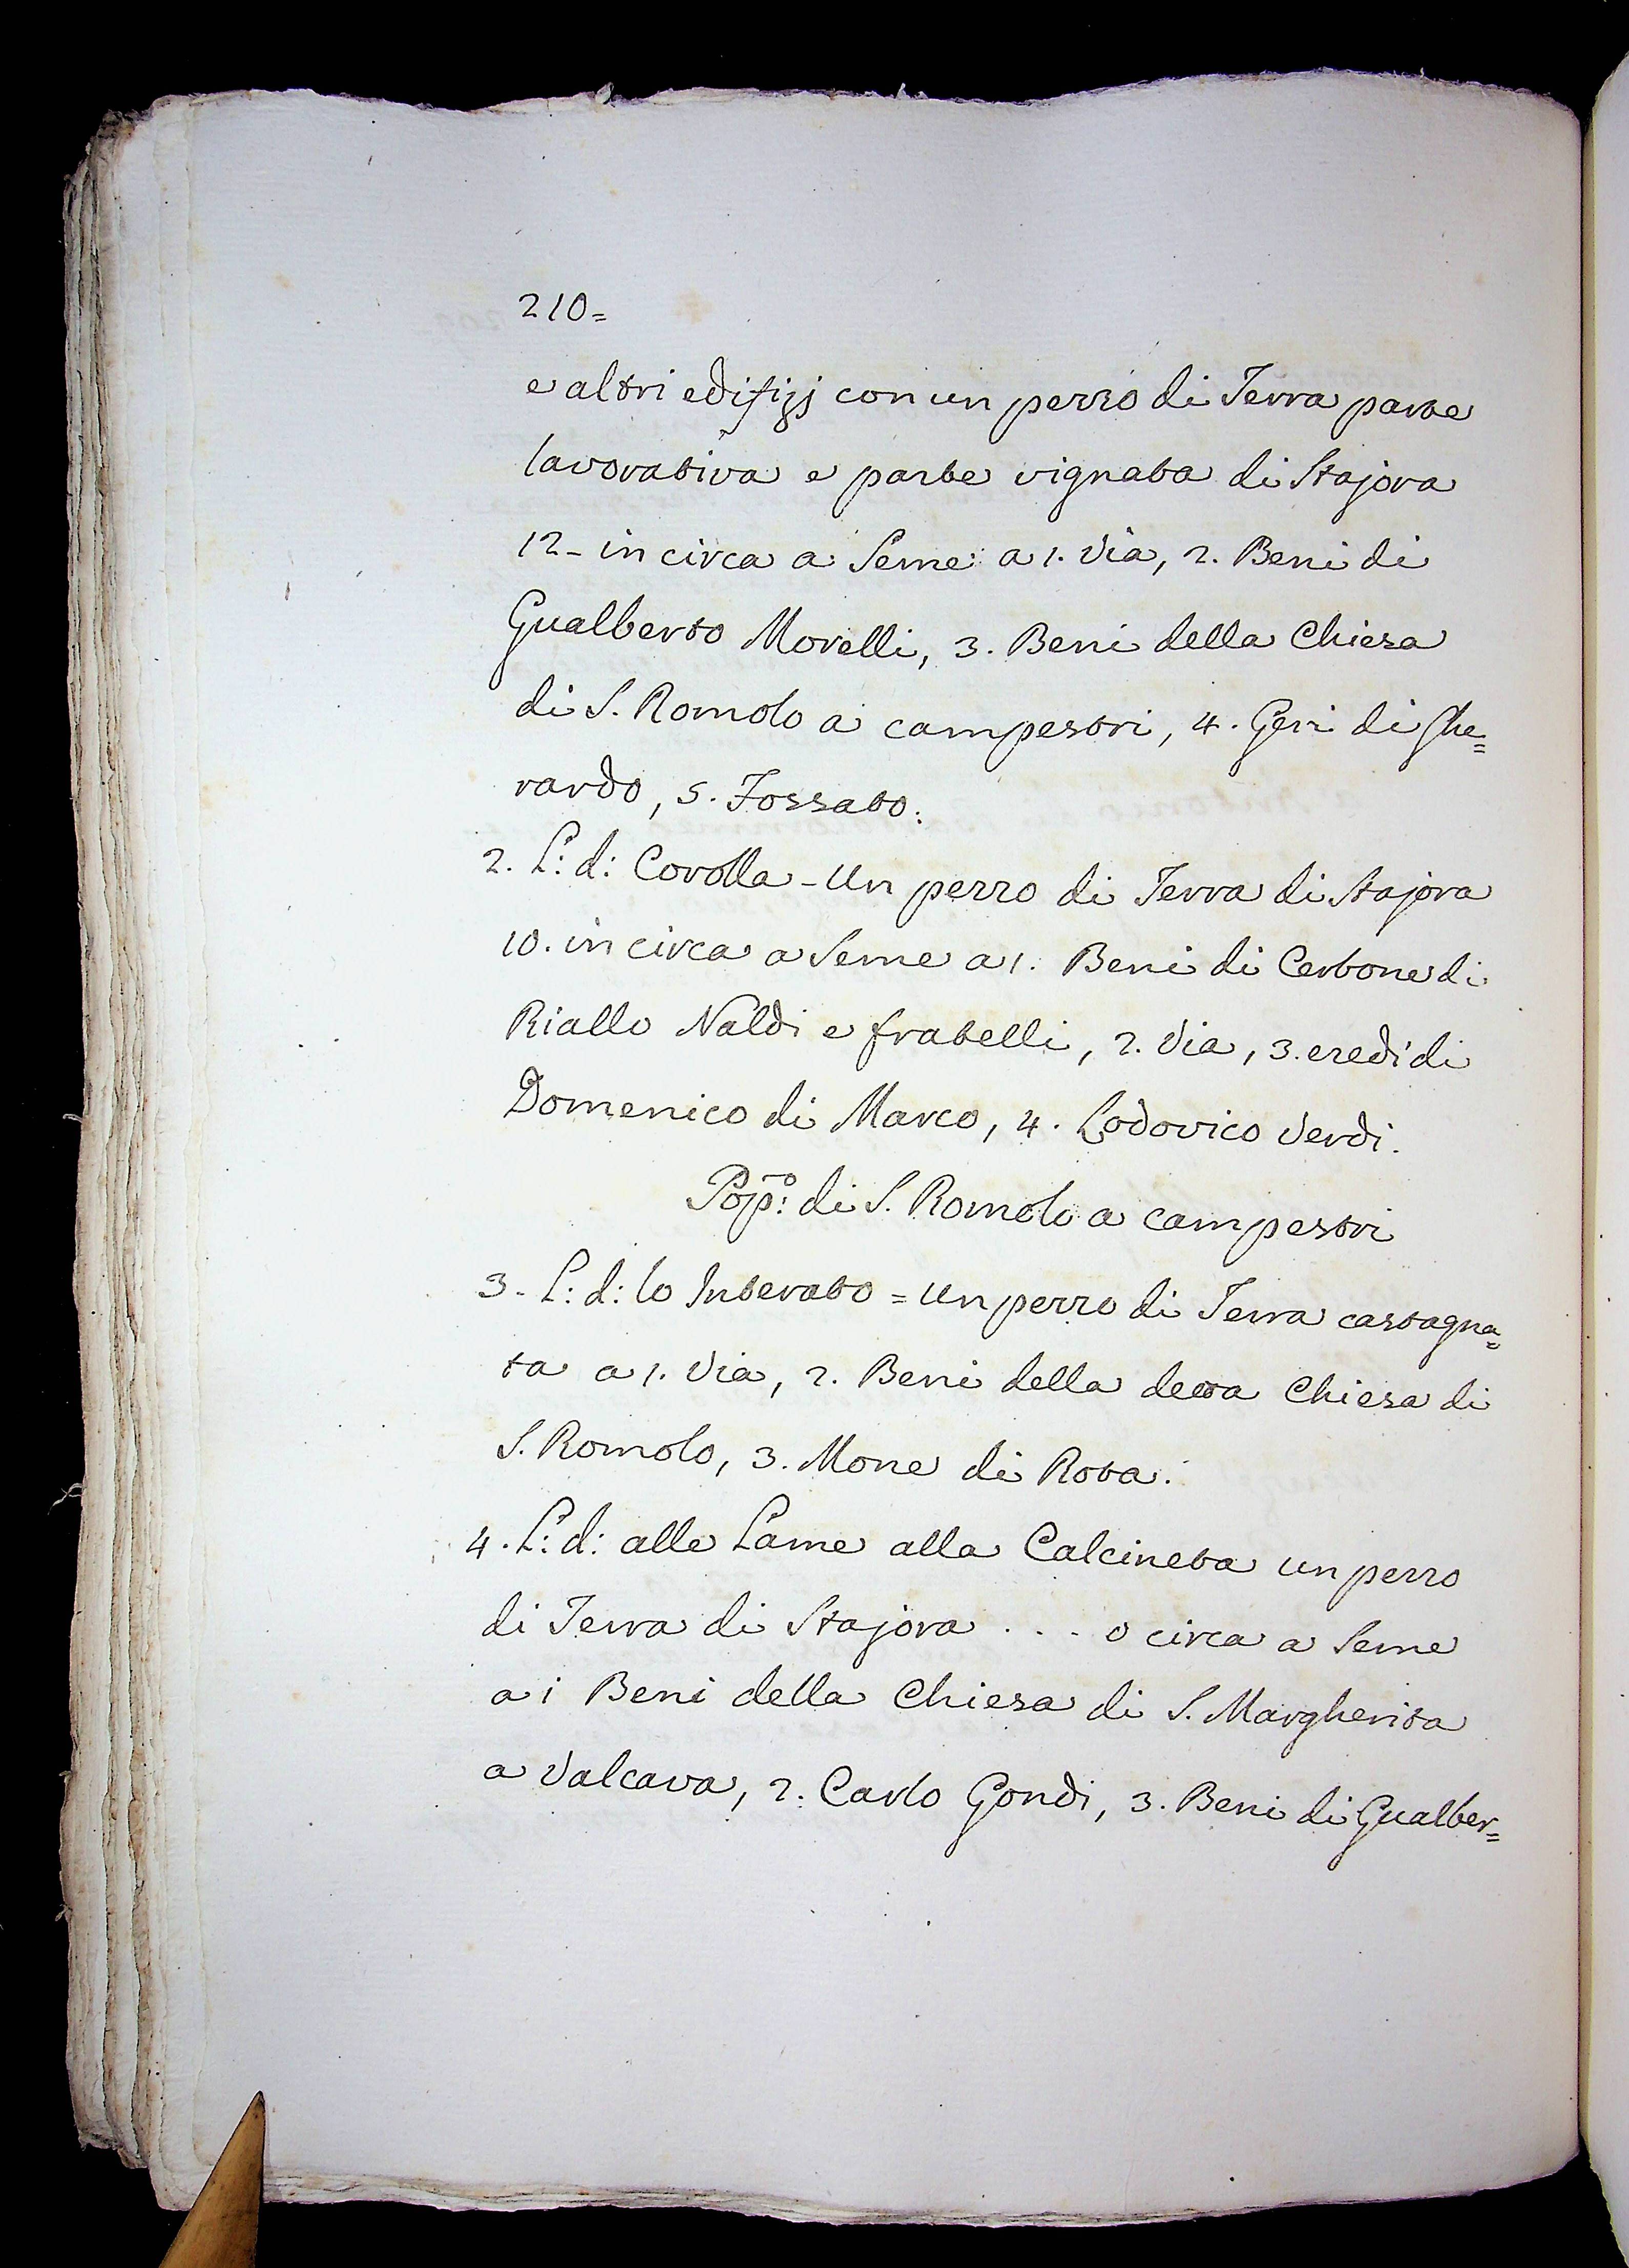 210=
e altri edifizj con un pezzo di Terra parte
lavorativa e parte vignata di Stajora
12- in circa a Seme a 1. Via, 2. Beni di
Gualberto Morelli, 3. Beni della Chiesa
di S. Romolo a campestri, 4. Geri di Ghe=
rardo, 5. Fossato.
2. L: d: Corolla - Un pezzo di Terra di Stajora
10. in circa a Seme a 1. Beni di Cerbone di
Riallo Naldi e fratelli, 2. Via, 3. eredi di
Domenico di Marco, 4. Lodovico Verdi.
Pop:o di S. Romolo a campestri
3. L: d: lo Inserato = Un pezzo di Terra castagna=
ta a 1. Via, 2. Beni della detta Chiesa di
S. Romolo, 3. Mone di Rota.
4. L: d: alle Lame alla Calcineta un pezzo
di Terra di Stajora . . . o circa a Seme
a i Beni della Chiesa di S. Margherita
a Valcava, 2. Carlo Gondi, 3. Beni di Gualber=